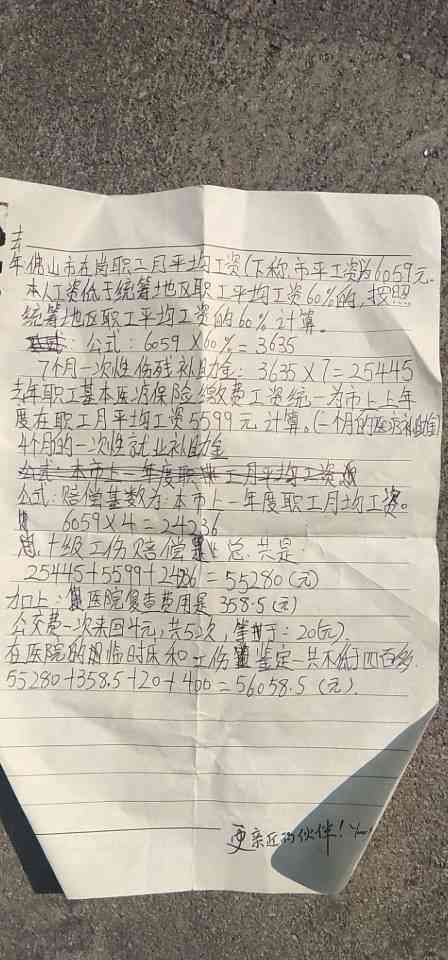 去
年佛山市在岗职工月平均工资(下称市平工资)为6059元.
本人工资低于统筹地区职工平均工资60%的,按照
统筹地区职工平均工资的60%计算。
公式:6059×60%=3635
7个月一次性伤残补助金:3635×7=25445
去年职工基本医疗保险缴费工资统一为市上上年
度在职工月平均工资5599元计算。(一个月的医疗补助金)
4个月的一次性就业补助金
公式:本市上一年度职工月平均工资
公式:赔偿基数为:本市上一年度职工月均工资。
6059×4=24236
总:十级工伤赔偿 总共是:
25445+5599+24236=55280(元)
加上:医院复查费用是358.5(元)
公交费一次来回4元,共5次,等于:20(元).
在医院的租临时床和工伤鉴定一共不低于四百多.
55280+358.5+20+400=56058.5(元).
更亲近的伙伴!